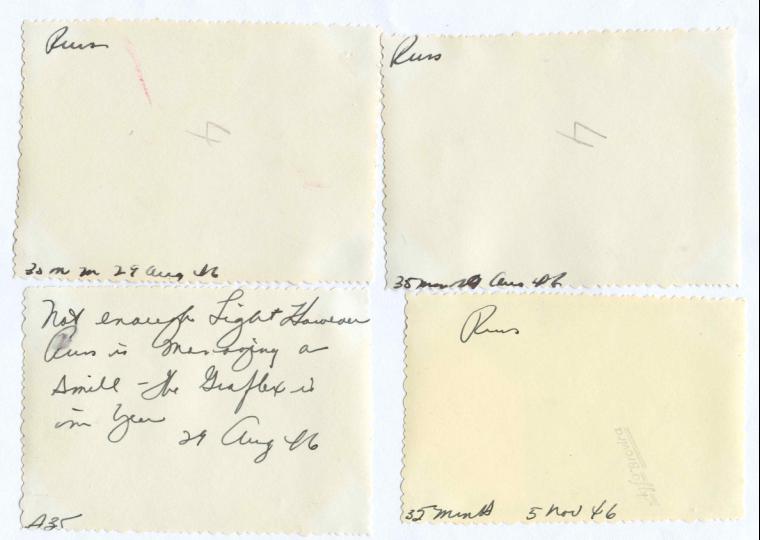 Russ
4
35 m m 29 Aug 46
Russ
4
35 mm 29 Aug 46
Not enough Light However
Russ is managing a
smile - The Graflex is
in
29 Aug 46
A35
Russ
35 5 Nov 46